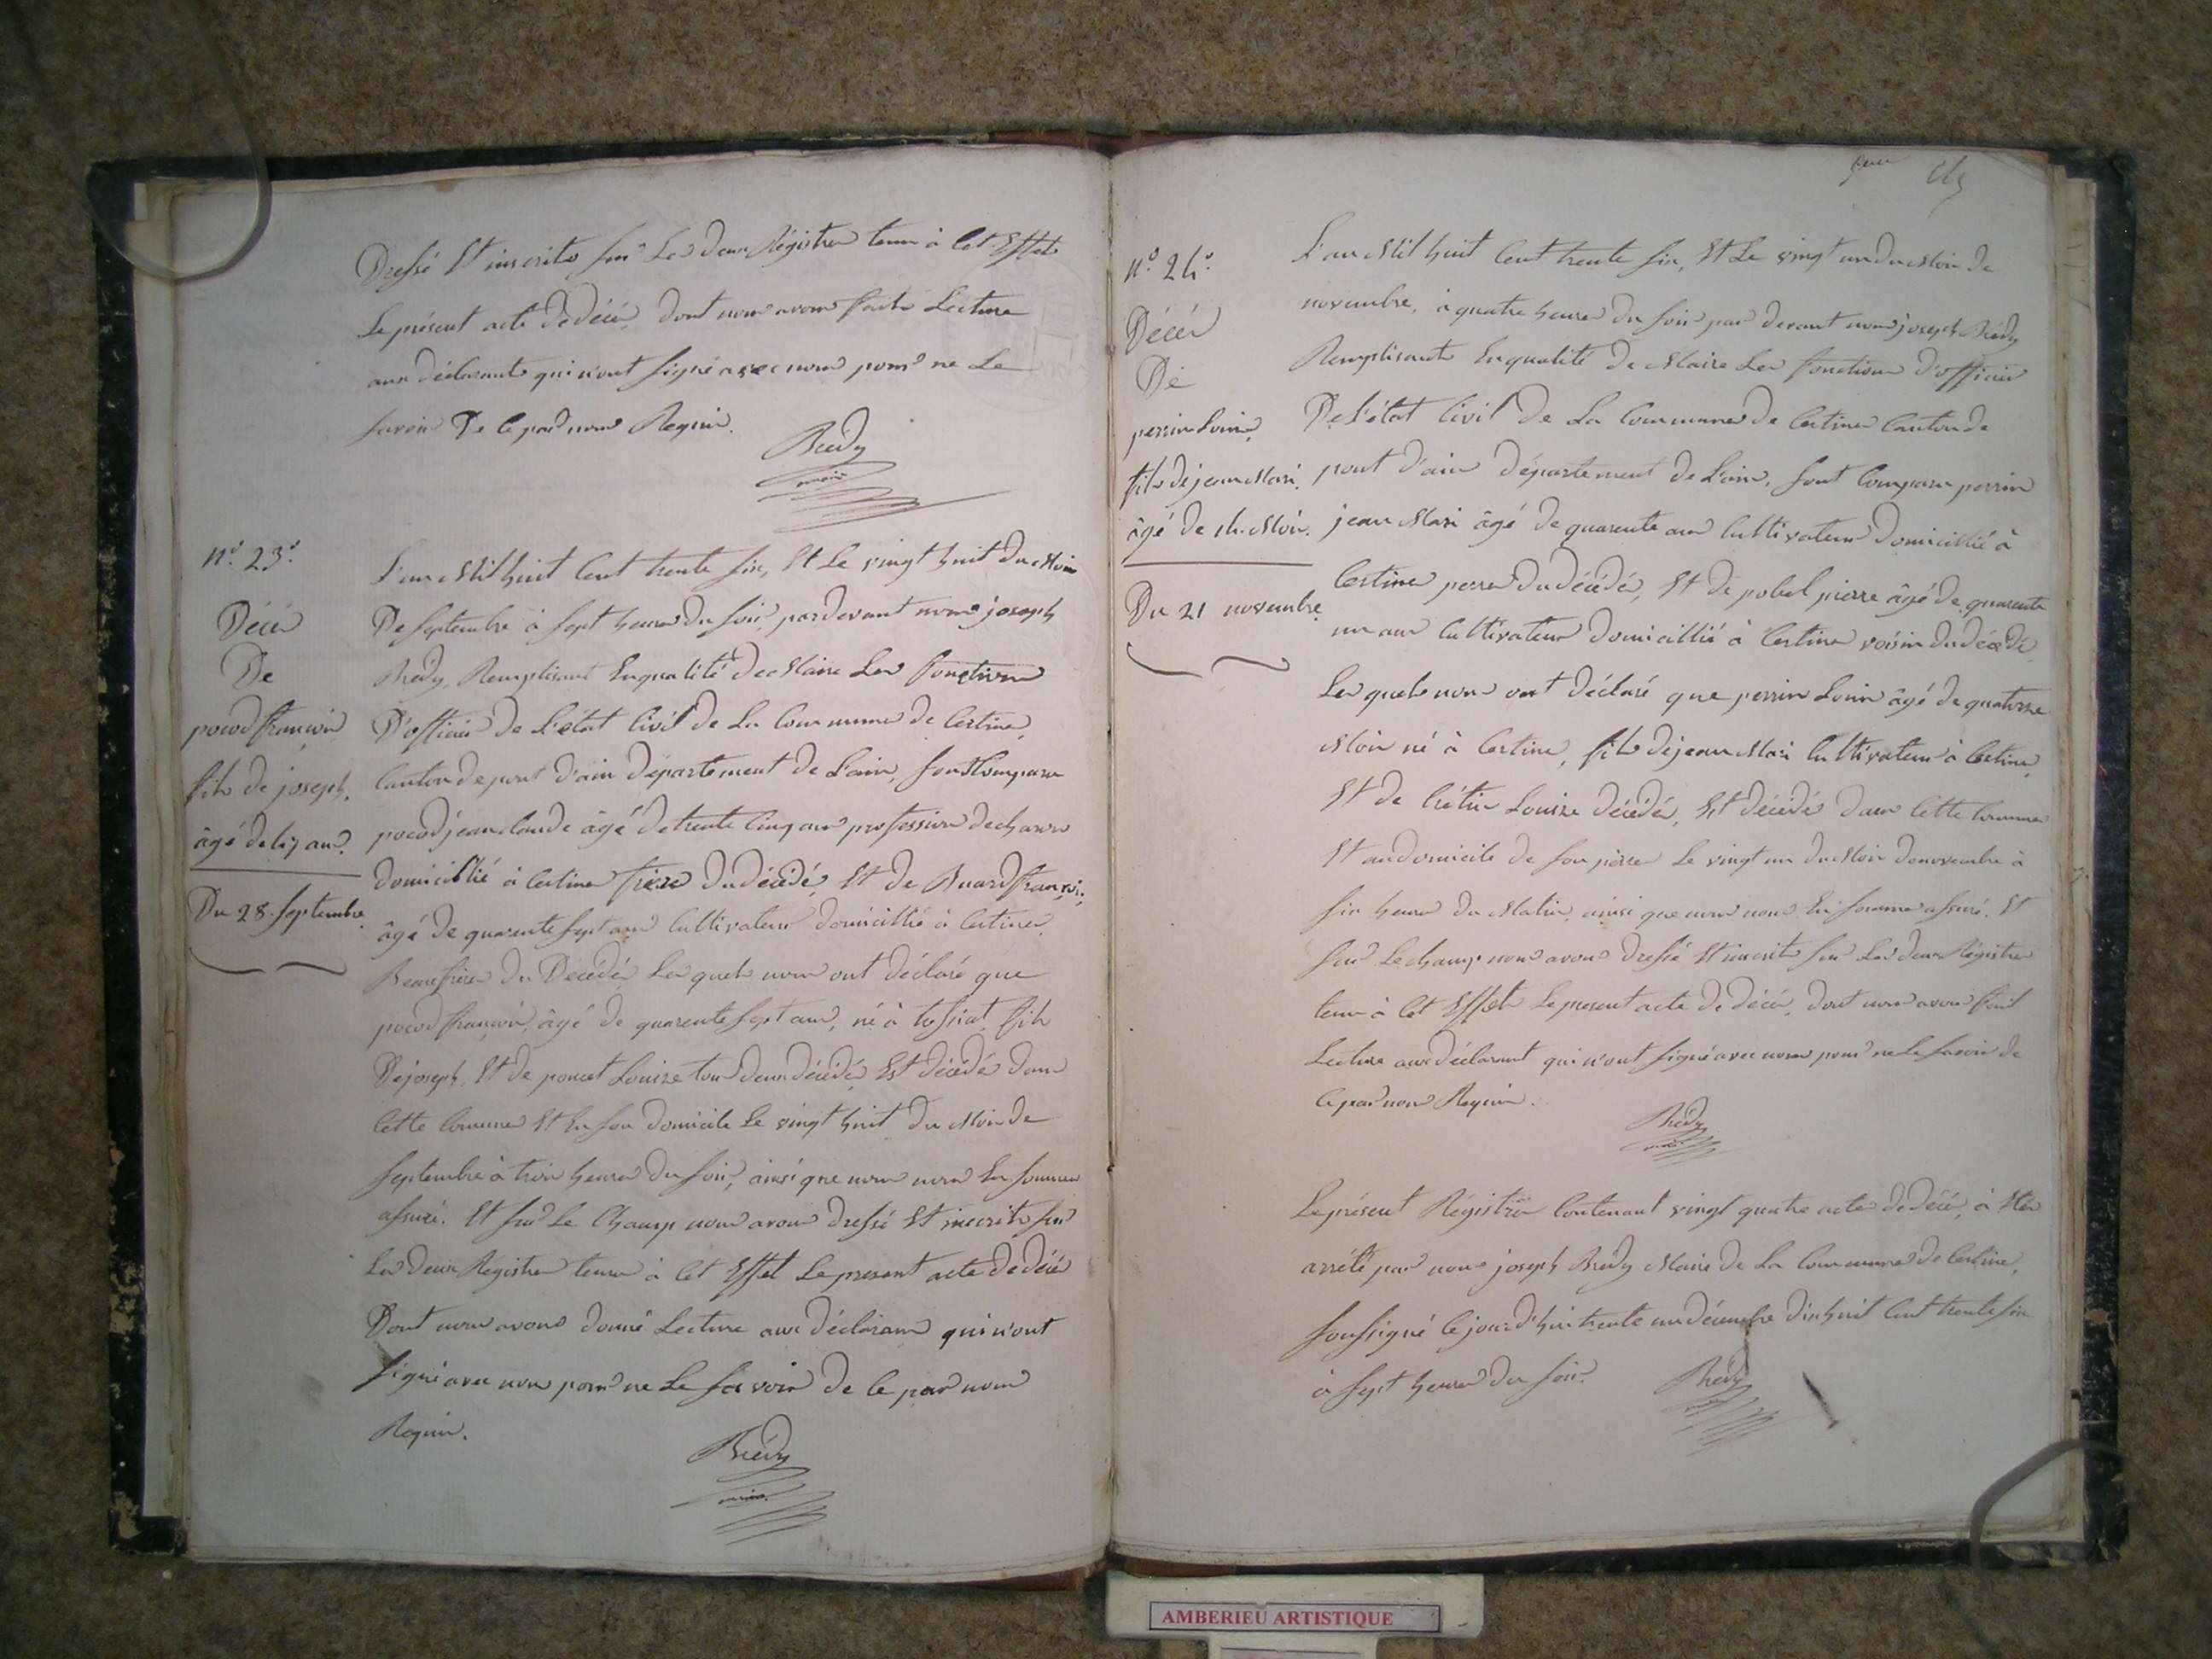 Dressé Et inscrits sur Les deux Régistres tenu à Cet Effets
Le présent acte Dedécès, Dont nous avons faits Lecture
aux déclarants qui n'ont signé avec nous pour ne Le
savoir De Ce par nous Requis.
Bredy
maire
N.º 23.º
Décès
De
pocod françois
fils de joseph,
âgé de 47 ans.
Du 28. septembre
L'an Mil huit Cent trente six, Et Le vingt huit du Mois
De septembre à sept heures Du soir, pardevant nous joseph
Brédy, Remplisant Enqualité De Maire Les fonctions
D'officier De L'état Civil de La Commune de Certines,
Canton de pont d'ain Département de L'ain, sont Comparu
pocod jean claude âgé de trente Cinq ans profession de charon
domicillié à Certines frère Du décédé, Et de Buard françois,
âgé De quarente sept ans Cultivateur domicillié à Certines
Beaufrère Du Décédé, Les quels nous ont déclaré que
pocod françois, âgé de quarente sept ans, né à tossiat, fils
De joseph, Et de poncet Louise tous deux décédés Est décédé dans
Cette Commune Et En son domicile Le vingt huit Du Mois de
septembre à trois heures Du soir, ainsi que nous nous En sommes
assuré. Et sur Le Champ nous avons dressé Et inscrits sur
Les deux Registres tenu à Cet Effet Le present acte De décès
Dont nous avons donné Lecture aux déclarans qui n'ont
signé avec nous pour ne Le savoir De Ce par nous
Requis.
Brédy
maire
N.º 24.º
Décès
De
perrin Louis,
fils de jean Mari.
âgé de 14. Mois.
Du 21 novembre
L'an Mil huit Cent trente six, Et Le vingt un du Mois de
novembre, à quatre heures Du soir par devant nous joseph Brédy
Remplisants Enqualité De Maire Les fonctions D'officier
De L'état Civil De La Commune De Certines Canton de
pont D'ain Département De L'ain, sont Comparu perrin
jean Mari âgé de quarente ans Cultivateur Domicillié à
Certines perre du décédé, Et de pobel pierre âgé de quarente
un ans Cultivateur domicillié à Certines voisin du décédé
Les quels nous ont déclaré que perrin Louis âgé de quatorze
Mois né à Certines, fils de jean Mari Cultivateur à Certines,
Et de Crétin Louise décédée, Est décédé dans Cette Commune
Et au domicile de son père Le vingt un du Mois de novembre à
six heures Du Matin, ainsi que nous nous En sommes assuré. Et
sur Le champ nous avons dressé Et inscrits sur Les deux Régistres
tenu à Cet Effets Le present acte De décès, dont nous avons fait
Lecture aux déclarant qui n'ont signé avec nous pour ne Le savoir de
Ce par nous Requis.
Brédy
maire
Le présent Régistre Contenant vingt quatre actes de décès, à Eté
arrêté par nous joseph Brédy Maire De La Commune De Certines,
soussigné Ce jourd'hui trente un décembre dix huit Cent trente six
à sept heures Du soir.
Brédy
AMBERIEU ARTISTIQUE